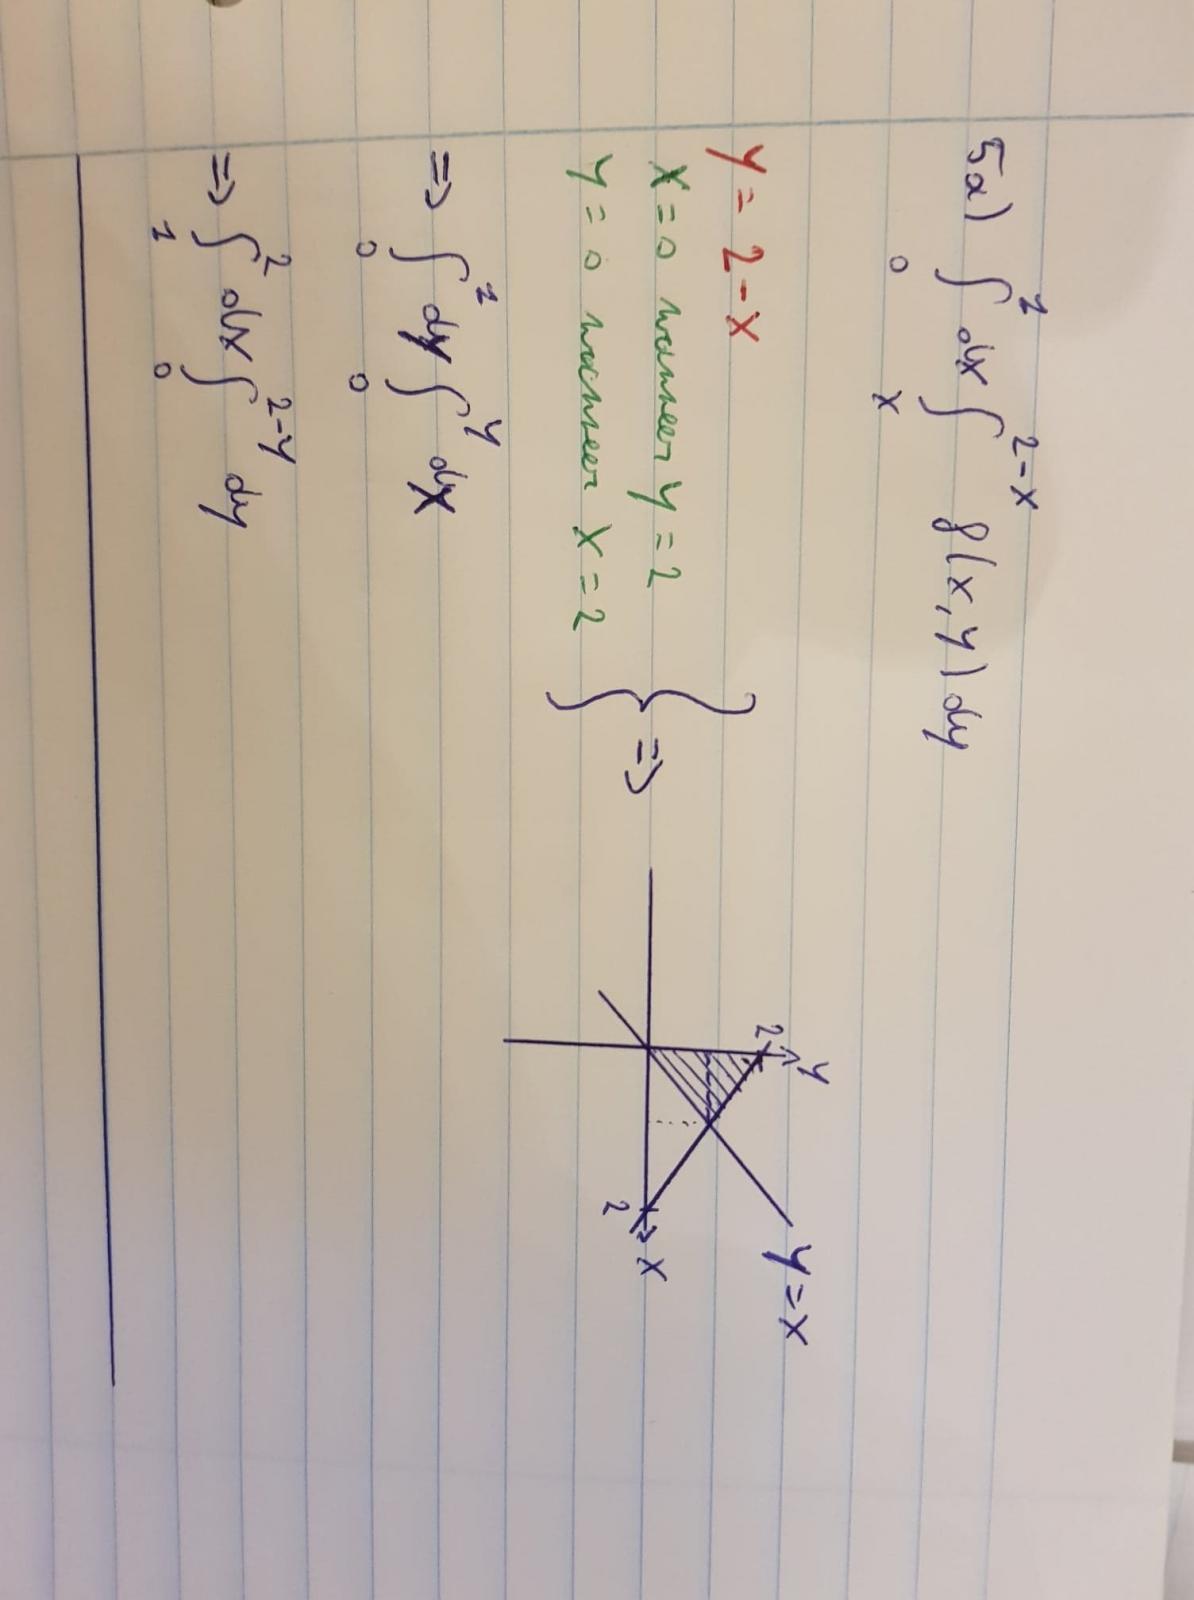 5a) ∫₀¹ dx ∫ₓ²⁻ˣ f(x,y) dy
y = 2-x
x=0 wanneer y=2
y=0 wanneer x=2
} =>
y
2
y=x
2
x
=> ∫₀¹ dy ∫₀ʸ dx
=> ∫₁² dx ∫₀²⁻ʸ dy